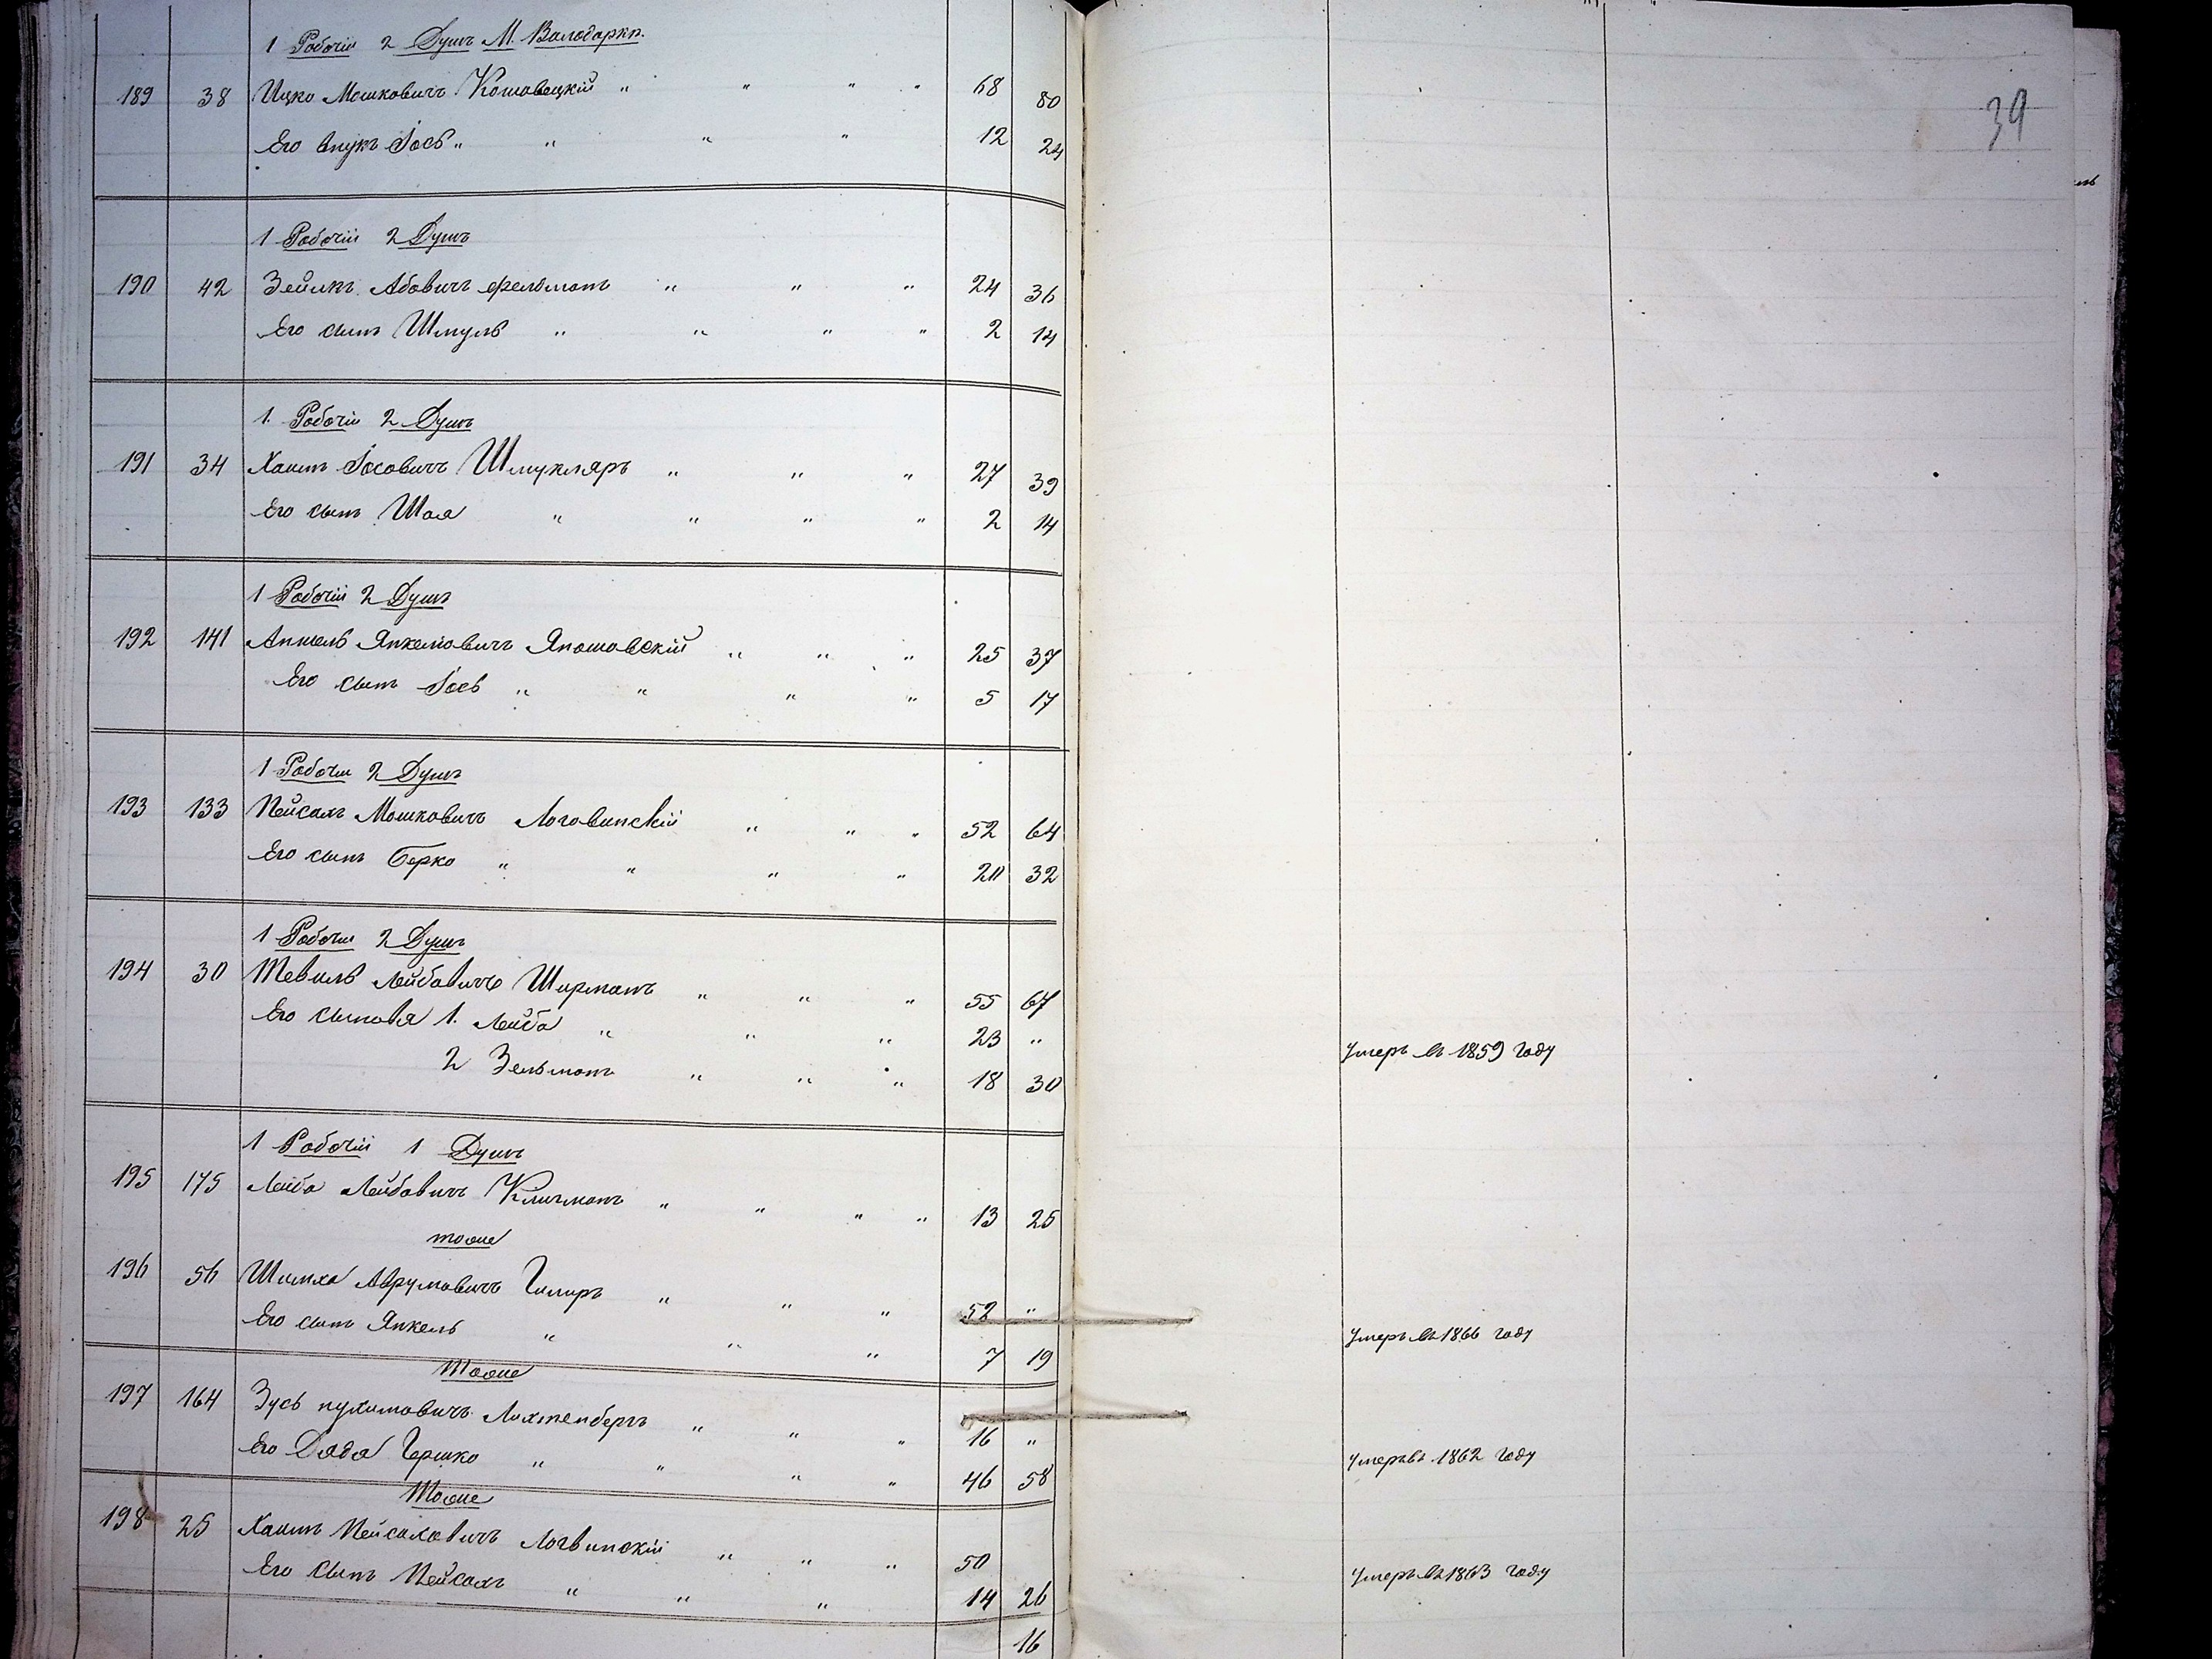 1 Рабочiй 2 Душъ М. Володарки.
189 38 Ицко Мошковичъ Кошовацкiй " " " " 68 80
Его внукъ Iось " " " " 12 24
39
1 Рабочiй 2 Душъ
190 42 Зейликъ Абовичъ Фельманъ " " " 24 36
Его сынъ Шмуль " " " " 2 14
1. Рабочiй 2 Душъ
191 34 Хаимъ Iосовичъ Шмукляръ " " " 27 39
Его сынъ Шая " " " " 2 14
1 Рабочiй 2 Душъ
192 141 Аншель Янкелiовичъ Яношовскiй " " " 25 37
Его сынъ Iось " " " " 5 17
1 Рабочiй 2 Душъ
193 133 Пейсахъ Мошковичъ Логовинскiй " " " 52 64
Его сынъ Берко " " " " 20 32
1 Рабочiй 2 Душъ
194 30 Тевель Лейбовичъ Ширманъ " " " 55 67
Его сыновя 1. Лейба " " " 23 " Умеръ въ 1859 году
2 Зельманъ " " " 18 30
1 Рабочiй 1 Душъ
195 175 Лейба Лейбовичъ Кличманъ " " " " 13 25
тоже
196 56 Шимха Аврумовичъ Гилиръ " " " 52 " Умеръ въ 1866 году
Его сынъ Янкель " " " 7 19
Тоже
197 164 Зусь Нухимовичъ Лихтенбергъ " " " 16 " Умеръ въ 1862 году
Его Дядя Гершко " " " " 46 58
Тоже
198 25 Хаимъ Пейсаховичъ Логвинскiй " " " 50 Умеръ въ 1863 году
Его сынъ Пейсахъ " " " 14 26
16